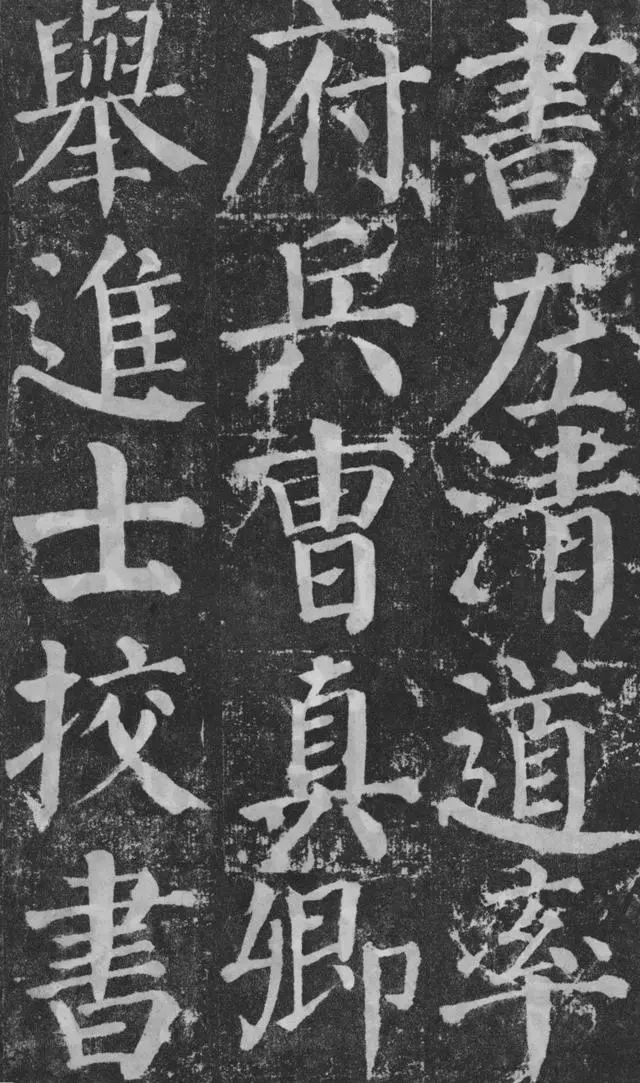 書左清道率
府兵曹真卿
舉進士挍書